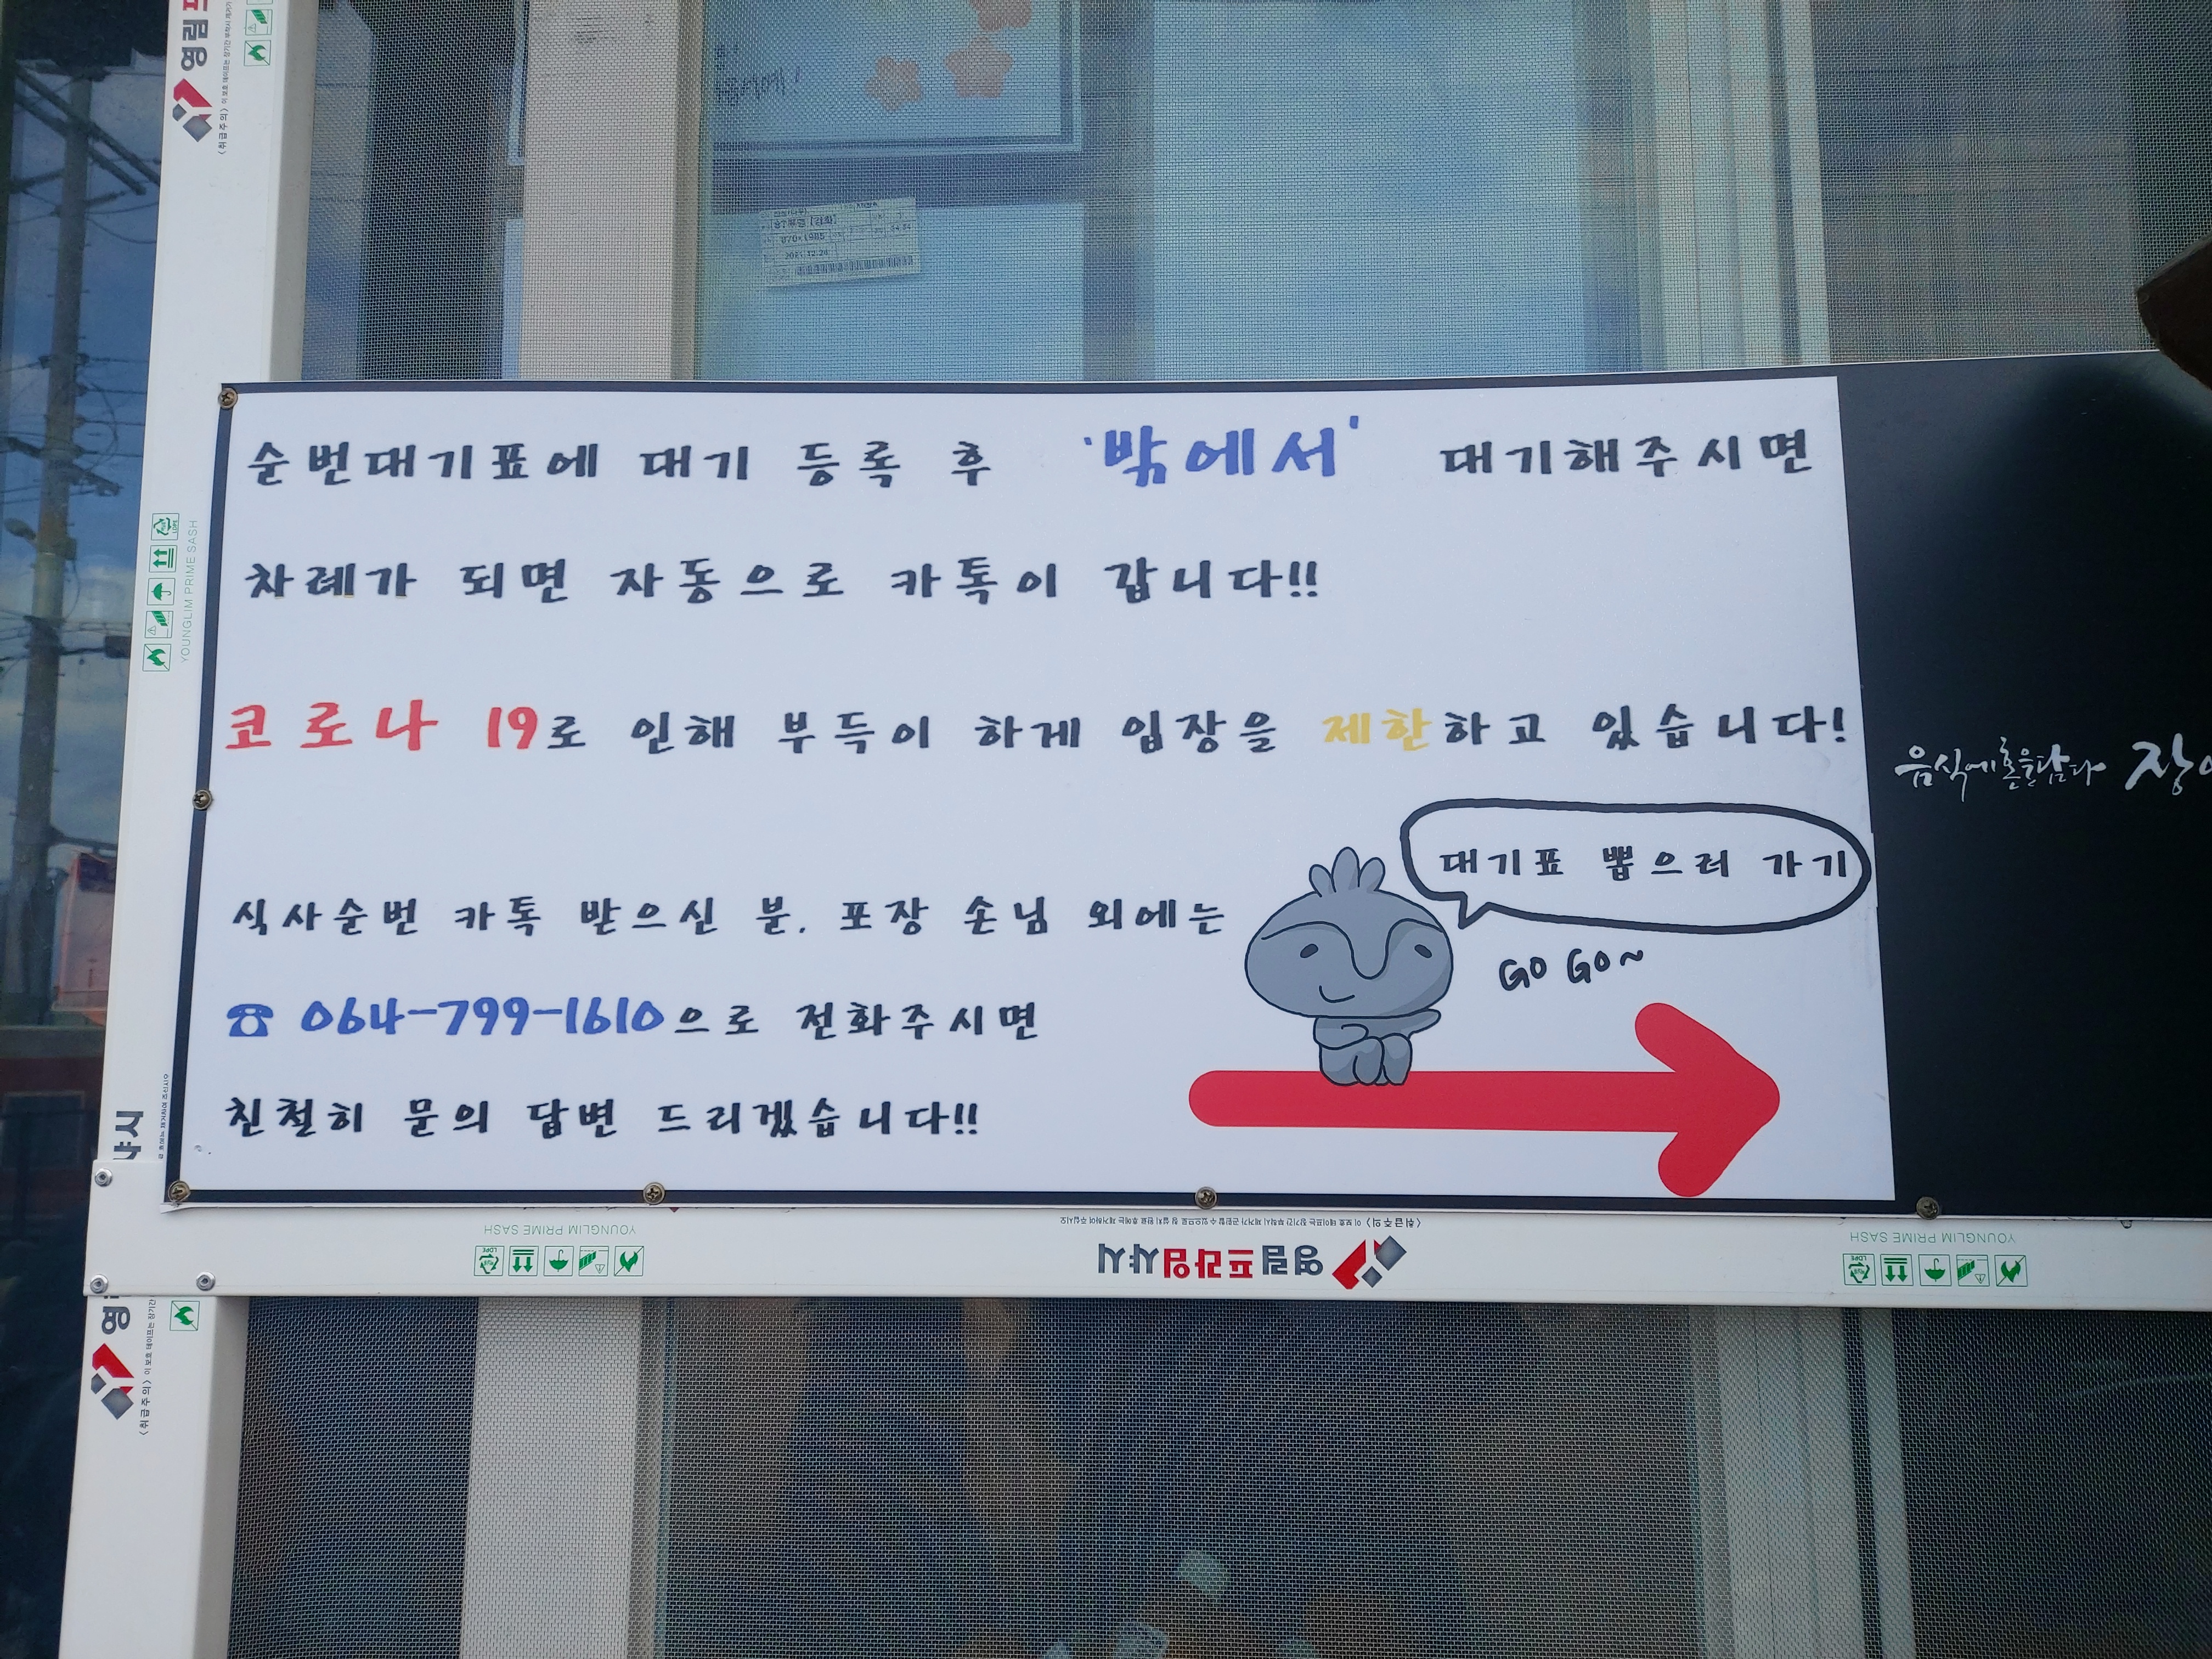 순번대기표에 대기 등록 후 '밖에서' 대기해주시면
차례가 되면 자동으로 카톡이 갑니다!!
코로나 19로 인해 부득이 하게 입장을 제한하고 있습니다!
식사순번 카톡 받으신 분, 포장 손님 외에는
☎ 064-799-1610으로 전화주시면
친절히 문의 답변 드리겠습니다!!
대기표 뽑으러 가기
GO GO~
음식에 혼을 담다
YOUNGLIM PRIME SASH
YOUNGLIM PRIME SASH
영림프라임샤시
YOUNGLIM PRIME SASH
영림
〈취급주의〉
870×1985
2021.12.24